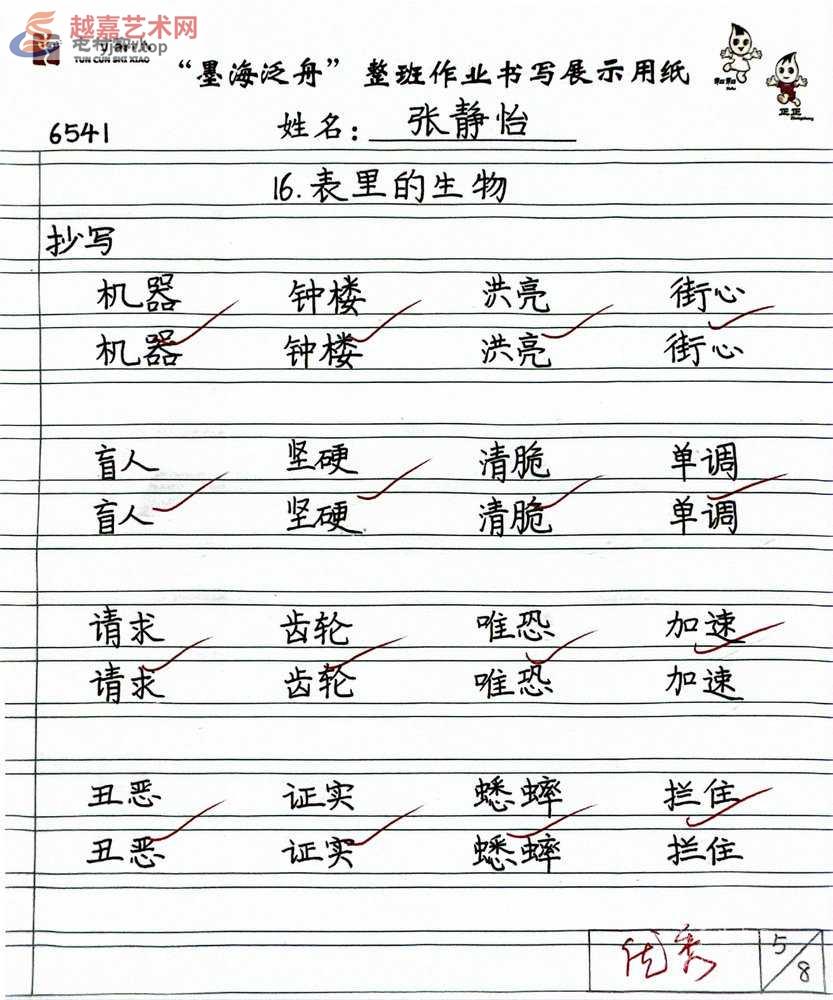 越嘉艺术网
yjart.top
TUN CUN SHI XIAO
“墨海泛舟”整班作业书写展示用纸
和和
正正
6541 姓名：张静怡
16.表里的生物
抄写
机器 钟楼 洪亮 街心
机器 钟楼 洪亮 街心
盲人 坚硬 清脆 单调
盲人 坚硬 清脆 单调
请求 齿轮 唯恐 加速
请求 齿轮 唯恐 加速
丑恶 证实 蟋蟀 拦住
丑恶 证实 蟋蟀 拦住
优秀 5/8